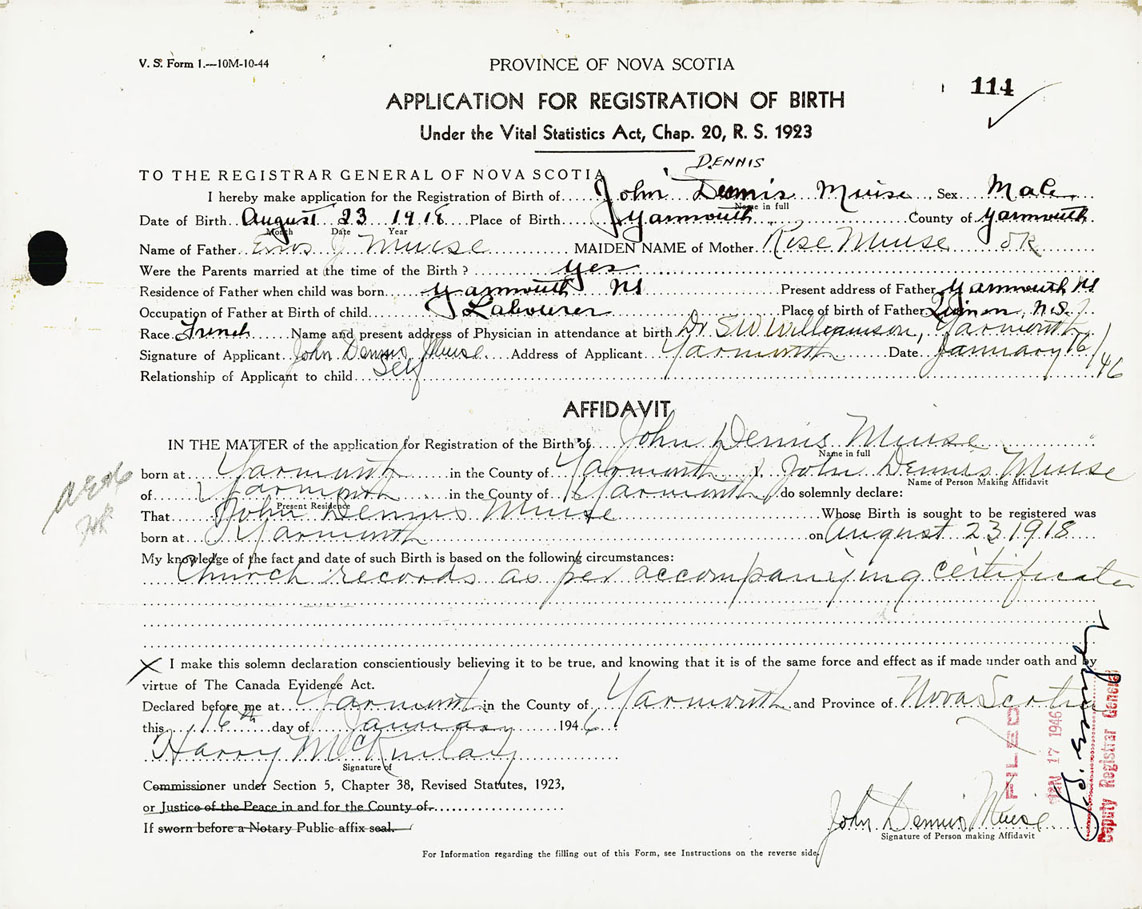 V. S. Form 1.—10M-10-44
PROVINCE OF NOVA SCOTIA
114
APPLICATION FOR REGISTRATION OF BIRTH
Under the Vital Statistics Act, Chap. 20, R. S. 1923
DENNIS
TO THE REGISTRAR GENERAL OF NOVA SCOTIA
I hereby make application for the Registration of Birth of John Dennis Muise Sex Male
Name in full
Date of Birth August 23 1918 Place of Birth Yarmouth County of Yarmouth
Month Date Year
Name of Father Enos J Muise MAIDEN NAME of Mother Rose Muise OK
Were the Parents married at the time of the Birth? yes
Residence of Father when child was born Yarmouth NS Present address of Father Yarmouth NS
Occupation of Father at Birth of child Labourer Place of birth of Father N.S.
Race French Name and present address of Physician in attendance at birth Dr. S W Williamson, Yarmouth
Signature of Applicant John Dennis Muise Address of Applicant Yarmouth Date January 16/46
Relationship of Applicant to child Self
AFFIDAVIT
IN THE MATTER of the application for Registration of the Birth of John Dennis Muise
Name in full
born at Yarmouth in the County of Yarmouth I, John Dennis Muise
Name of Person Making Affidavit
of Yarmouth in the County of Yarmouth do solemnly declare:
Present Residence
That John Dennis Muise Whose Birth is sought to be registered was
born at Yarmouth on August 23 1918
My knowledge of the fact and date of such Birth is based on the following circumstances:
Church records as per accompanying certificate
X I make this solemn declaration conscientiously believing it to be true, and knowing that it is of the same force and effect as if made under oath and by
virtue of The Canada Evidence Act.
Declared before me at Yarmouth in the County of Yarmouth and Province of Nova Scotia
this 16th day of January 1946
Harry McKinlay
Signature of
Commissioner under Section 5, Chapter 38, Revised Statutes, 1923,
or Justice of the Peace in and for the County of
If sworn before a Notary Public affix seal.
John Dennis Muise
Signature of Person making Affidavit
FILED
JAN 17 1946
Deputy Registrar General
For Information regarding the filling out of this Form, see Instructions on the reverse side.